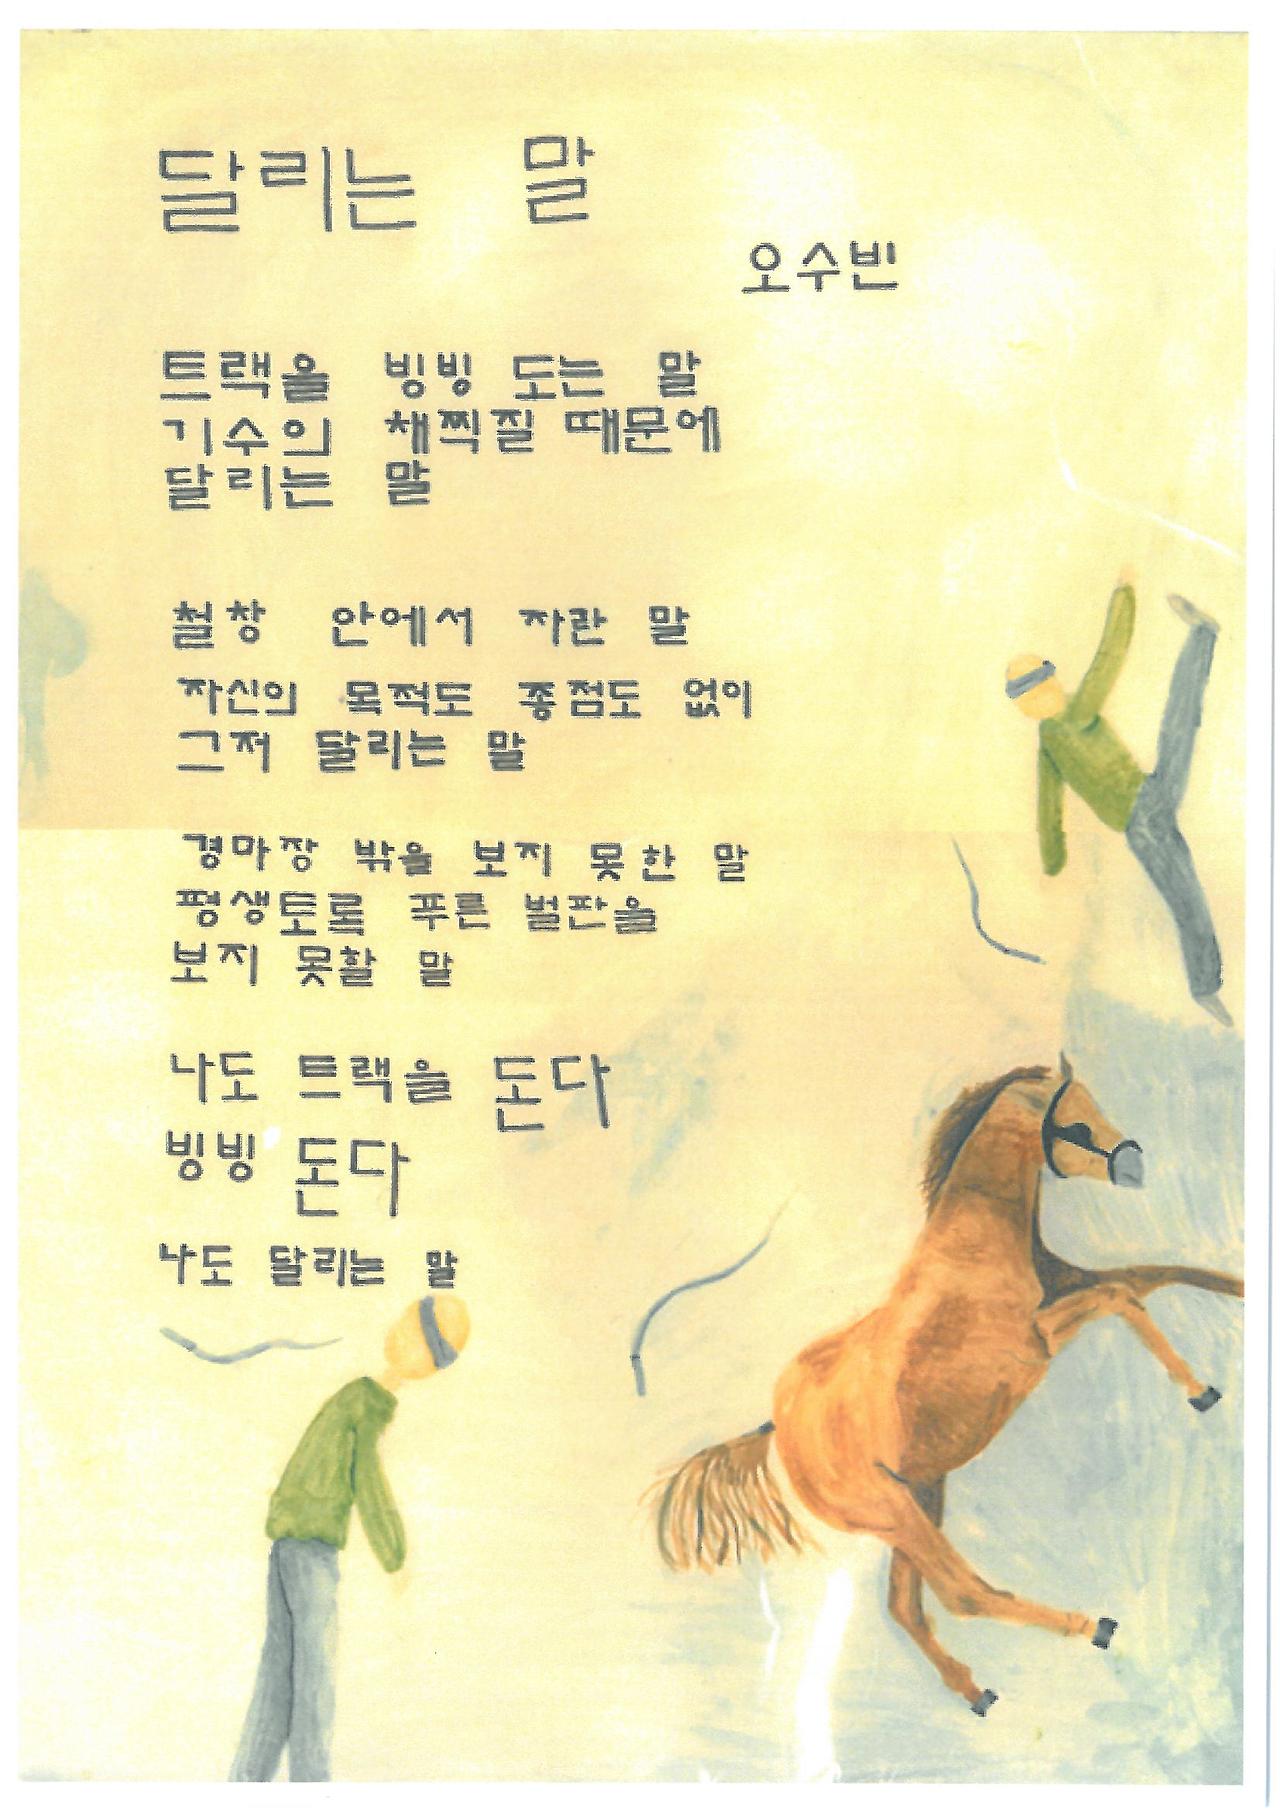 달리는 말
오수빈
트랙을 빙빙 도는 말
기수의 채찍질 때문에
달리는 말
철창 안에서 자란 말
자신의 목적도 종점도 없이
그저 달리는 말
경마장 밖을 보지 못한 말
평생도록 푸른 벌판을
보지 못할 말
나도 트랙을 돈다
빙빙 돈다
나도 달리는 말